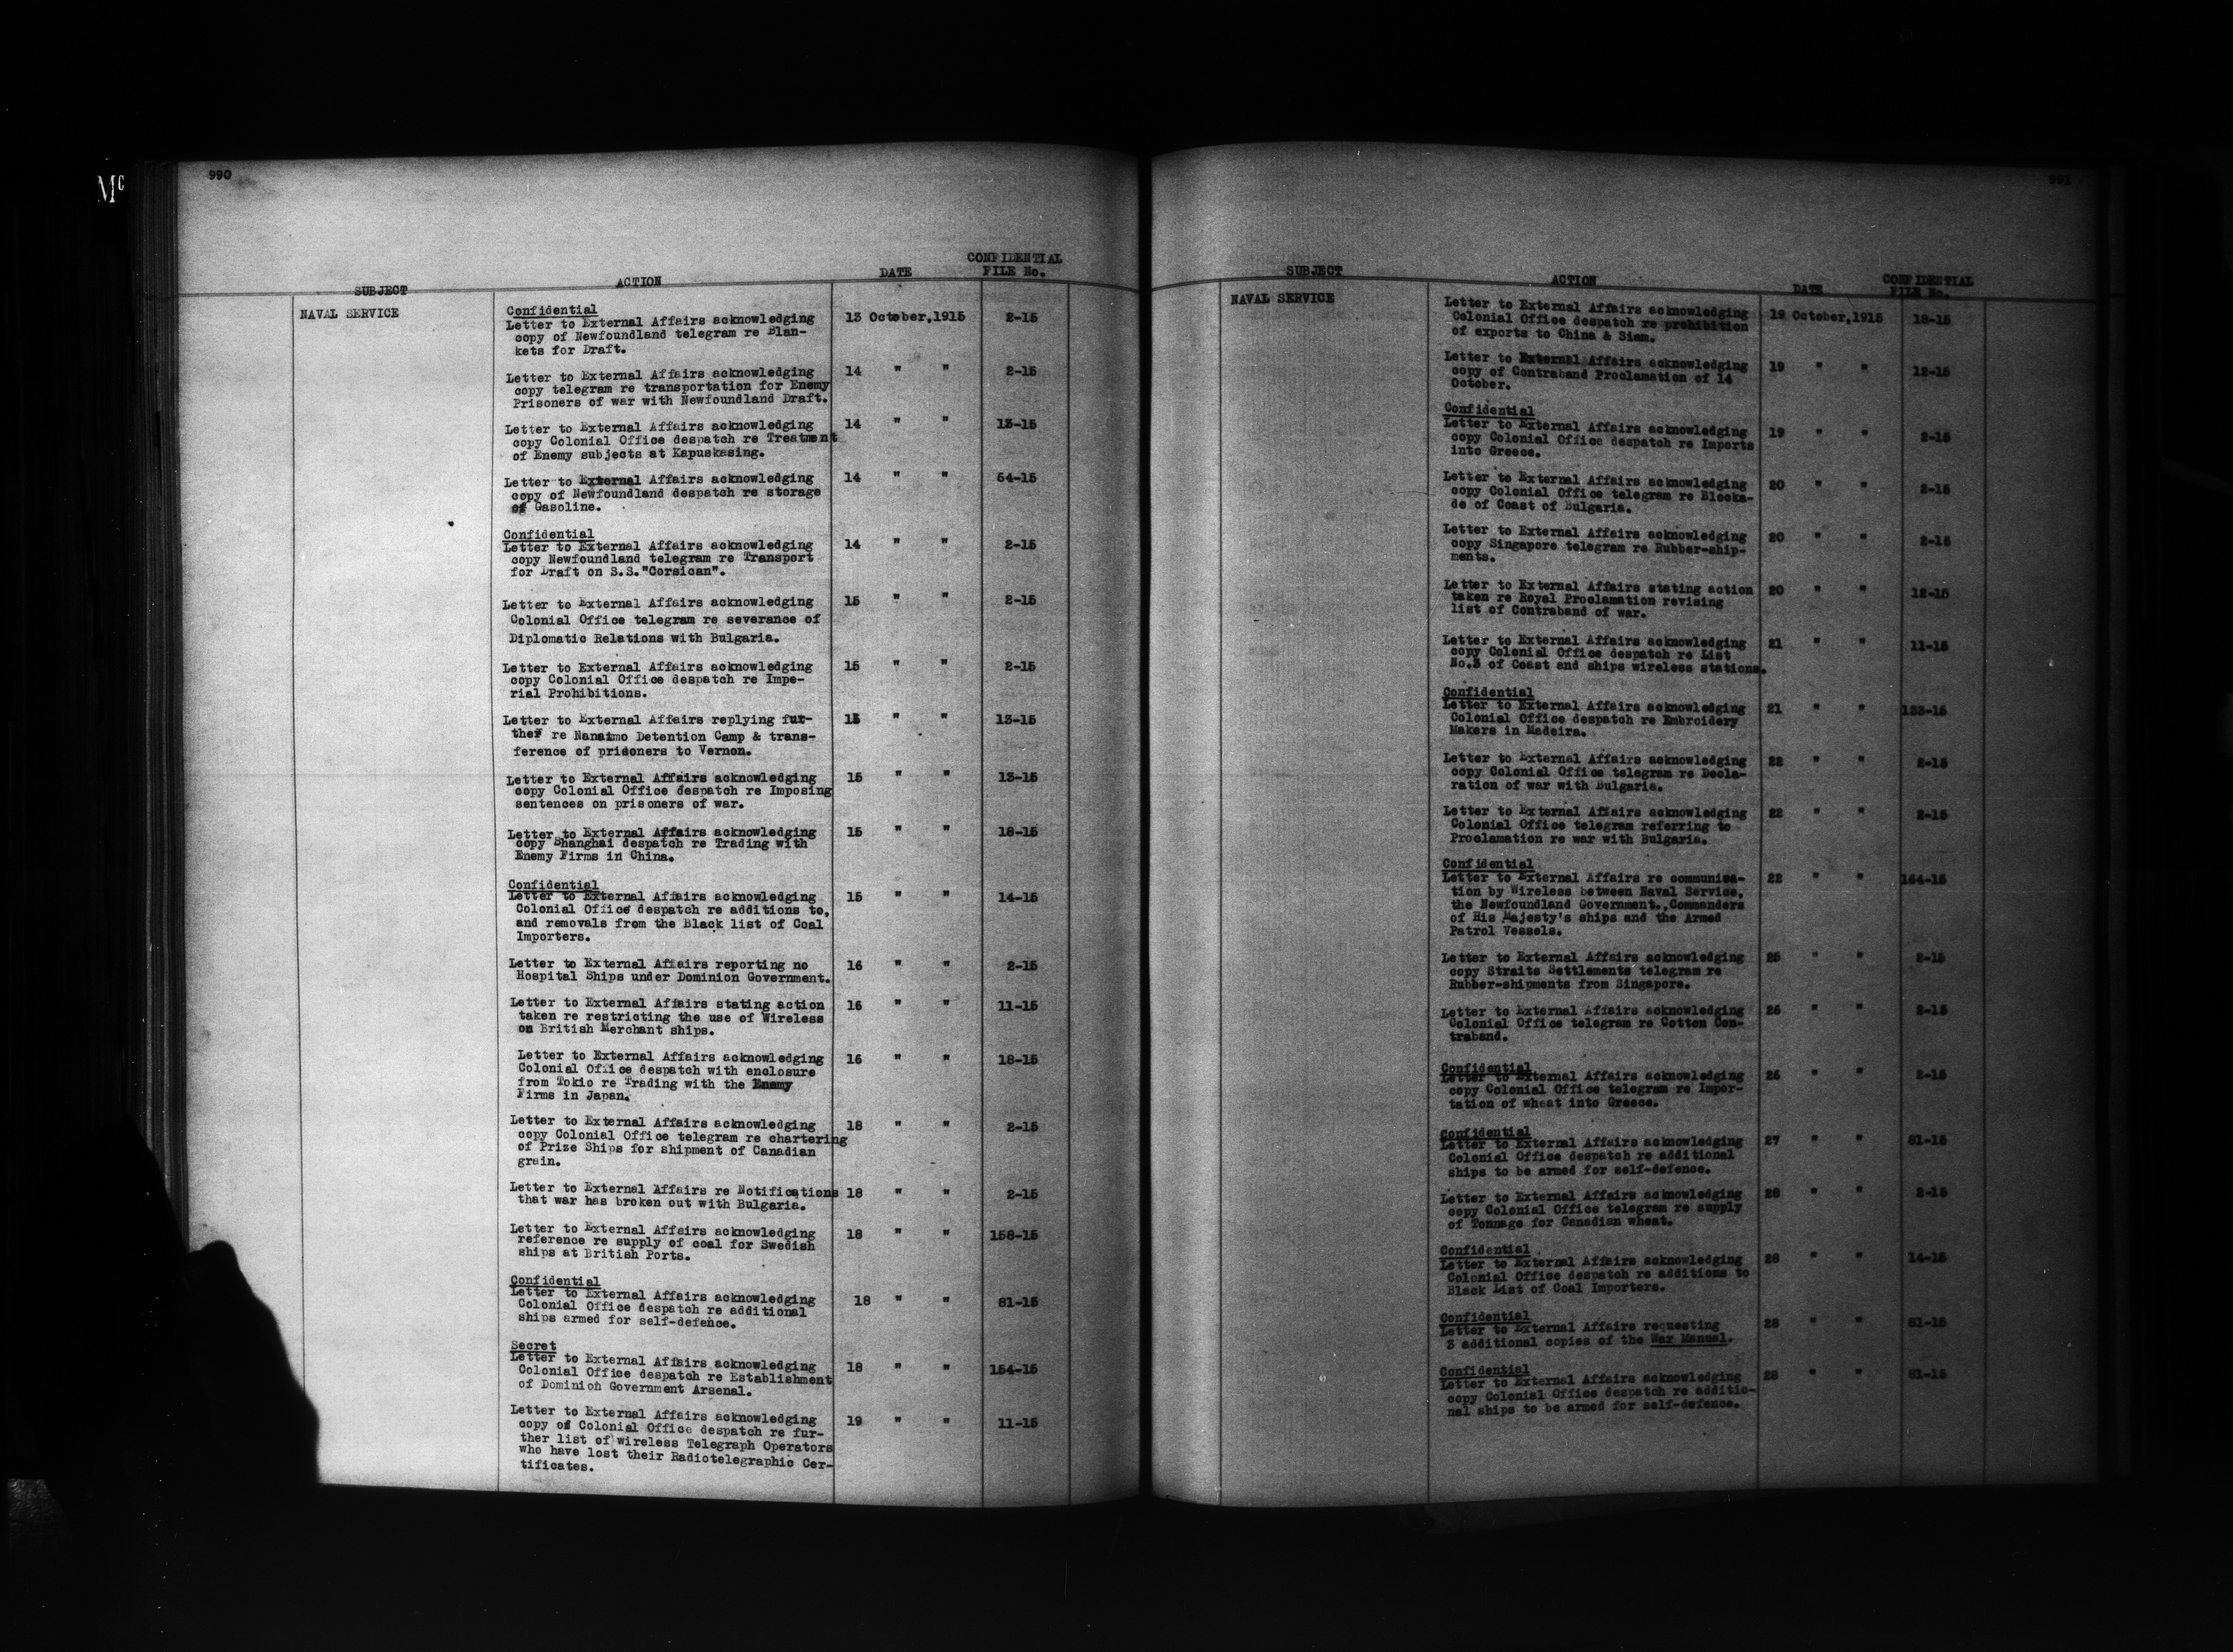 Mc
990
SUBJECT ACTION DATE CONFIDENTIAL FILE No.
NAVAL SERVICE
Confidential
Letter to External Affairs acknowledging 13 October,1915 2-15
copy of Newfoundland telegram re Blan-
kets for Draft.
Letter to External Affairs acknowledging 14 " " 2-15
copy telegram re transportation for Enemy
Prisoners of war with Newfoundland Draft.
Letter to External Affairs acknowledging 14 " " 13-15
copy Colonial Office despatch re Treatment
of Enemy subjects at Kapuskasing.
Letter to External Affairs acknowledging 14 " " 54-15
copy of Newfoundland despatch re storage
of Gasoline.
Confidential
Letter to External Affairs acknowledging 14 " " 2-15
copy Newfoundland telegram re Transport
for Draft on S.S."Corsican".
Letter to External Affairs acknowledging 15 " " 2-15
Colonial Office telegram re severance of
Diplomatic Relations with Bulgaria.
Letter to External Affairs acknowledging 15 " " 2-15
copy Colonial Office despatch re Impe-
rial Prohibitions.
Letter to External Affairs replying fur- 15 " " 13-15
ther re Nanaimo Detention Camp & trans-
ference of prisoners to Vernon.
Letter to External Affairs acknowledging 15 " " 13-15
copy Colonial Office despatch re Imposing
sentences on prisoners of war.
Letter to External Affairs acknowledging 15 " " 18-15
copy Shanghai despatch re Trading with
Enemy Firms in China.
Confidential
Letter to External Affairs acknowledging 15 " " 14-15
Colonial Office despatch re additions to,
and removals from the Black list of Coal
Importers.
Letter to External Affairs reporting no 16 " " 2-15
Hospital Ships under Dominion Government.
Letter to External Affairs stating action 16 " " 11-15
taken re restricting the use of Wireless
on British Merchant ships.
Letter to External Affairs acknowledging 16 " " 18-15
Colonial Office despatch with enclosure
from Tokio re Trading with the Enemy
Firms in Japan.
Letter to External Affairs acknowledging 18 " " 2-15
copy Colonial Office telegram re chartering
of Prize Ships for shipment of Canadian
grain.
Letter to External Affairs re Notifications 18 " " 2-15
that war has broken out with Bulgaria.
Letter to External Affairs acknowledging 18 " " 158-15
reference re supply of coal for Swedish
ships at British Ports.
Confidential
Letter to External Affairs acknowledging 18 " " 81-15
Colonial Office despatch re additional
ships armed for self-defence.
Secret
Letter to External Affairs acknowledging 18 " " 154-15
Colonial Office despatch re Establishment
of Dominion Government Arsenal.
Letter to External Affairs acknowledging 19 " " 11-15
copy of Colonial Office despatch re fur-
ther list of wireless Telegraph Operators
who have lost their Radiotelegraphic Cer-
tificates.
991
SUBJECT ACTION DATE CONFIDENTIAL FILE No.
NAVAL SERVICE
Letter to External Affairs acknowledging 19 October,1915 18-15
Colonial Office despatch re prohibition
of exports to China & Siam.
Letter to External Affairs acknowledging 19 " " 12-15
copy of Contraband Proclamation of 14
October.
Confidential
Letter to External Affairs acknowledging 19 " " 2-15
copy Colonial Office despatch re Imports
into Greece.
Letter to External Affairs acknowledging 20 " " 2-15
copy Colonial Office telegram re Blocka-
de of Coast of Bulgaria.
Letter to External Affairs acknowledging 20 " " 2-15
copy Singapore telegram re Rubber-ship-
ments.
Letter to External Affairs stating action 20 " " 12-15
taken re Royal Proclamation revising
list of Contraband of war.
Letter to External Affairs acknowledging 21 " " 11-15
copy Colonial Office despatch re List
No.3 of Coast and ships wireless stations.
Confidential
Letter to External Affairs acknowledging 21 " " 133-15
Colonial Office despatch re Embroidery
Makers in Madeira.
Letter to External Affairs acknowledging 22 " " 2-15
copy Colonial Office telegram re Decla-
ration of war with Bulgaria.
Letter to External Affairs acknowledging 22 " " 2-15
Colonial Office telegram referring to
Proclamation re war with Bulgaria.
Confidential
Letter to External Affairs re communica- 22 " " 164-15
tion by Wireless between Naval Service,
the Newfoundland Government.,Commanders
of His Majesty's ships and the Armed
Patrol Vessels.
Letter to External Affairs acknowledging 25 " " 2-15
copy Straits Settlements telegram re
Rubber-shipments from Singapore.
Letter to External Affairs acknowledging 26 " " 2-15
Colonial Office telegram re Cotton Con-
traband.
Confidential
Letter to External Affairs acknowledging 26 " " 2-15
copy Colonial Office telegram re Impor-
tation of wheat into Greece.
Confidential
Letter to External Affairs acknowledging 27 " " 81-15
Colonial Office despatch re additional
ships to be armed for self-defence.
Letter to External Affairs acknowledging 28 " " 2-15
copy Colonial Office telegram re supply
of Tonnage for Canadian wheat.
Confidential
Letter to External Affairs acknowledging 28 " " 14-15
Colonial Office despatch re additions to
Black List of Coal Importers.
Confidential
Letter to External Affairs requesting 28 " " 81-15
3 additional copies of the War Manual.
Confidential
Letter to External Affairs acknowledging 28 " " 81-15
copy Colonial Office despatch re additio-
nal ships to be armed for self-defence.